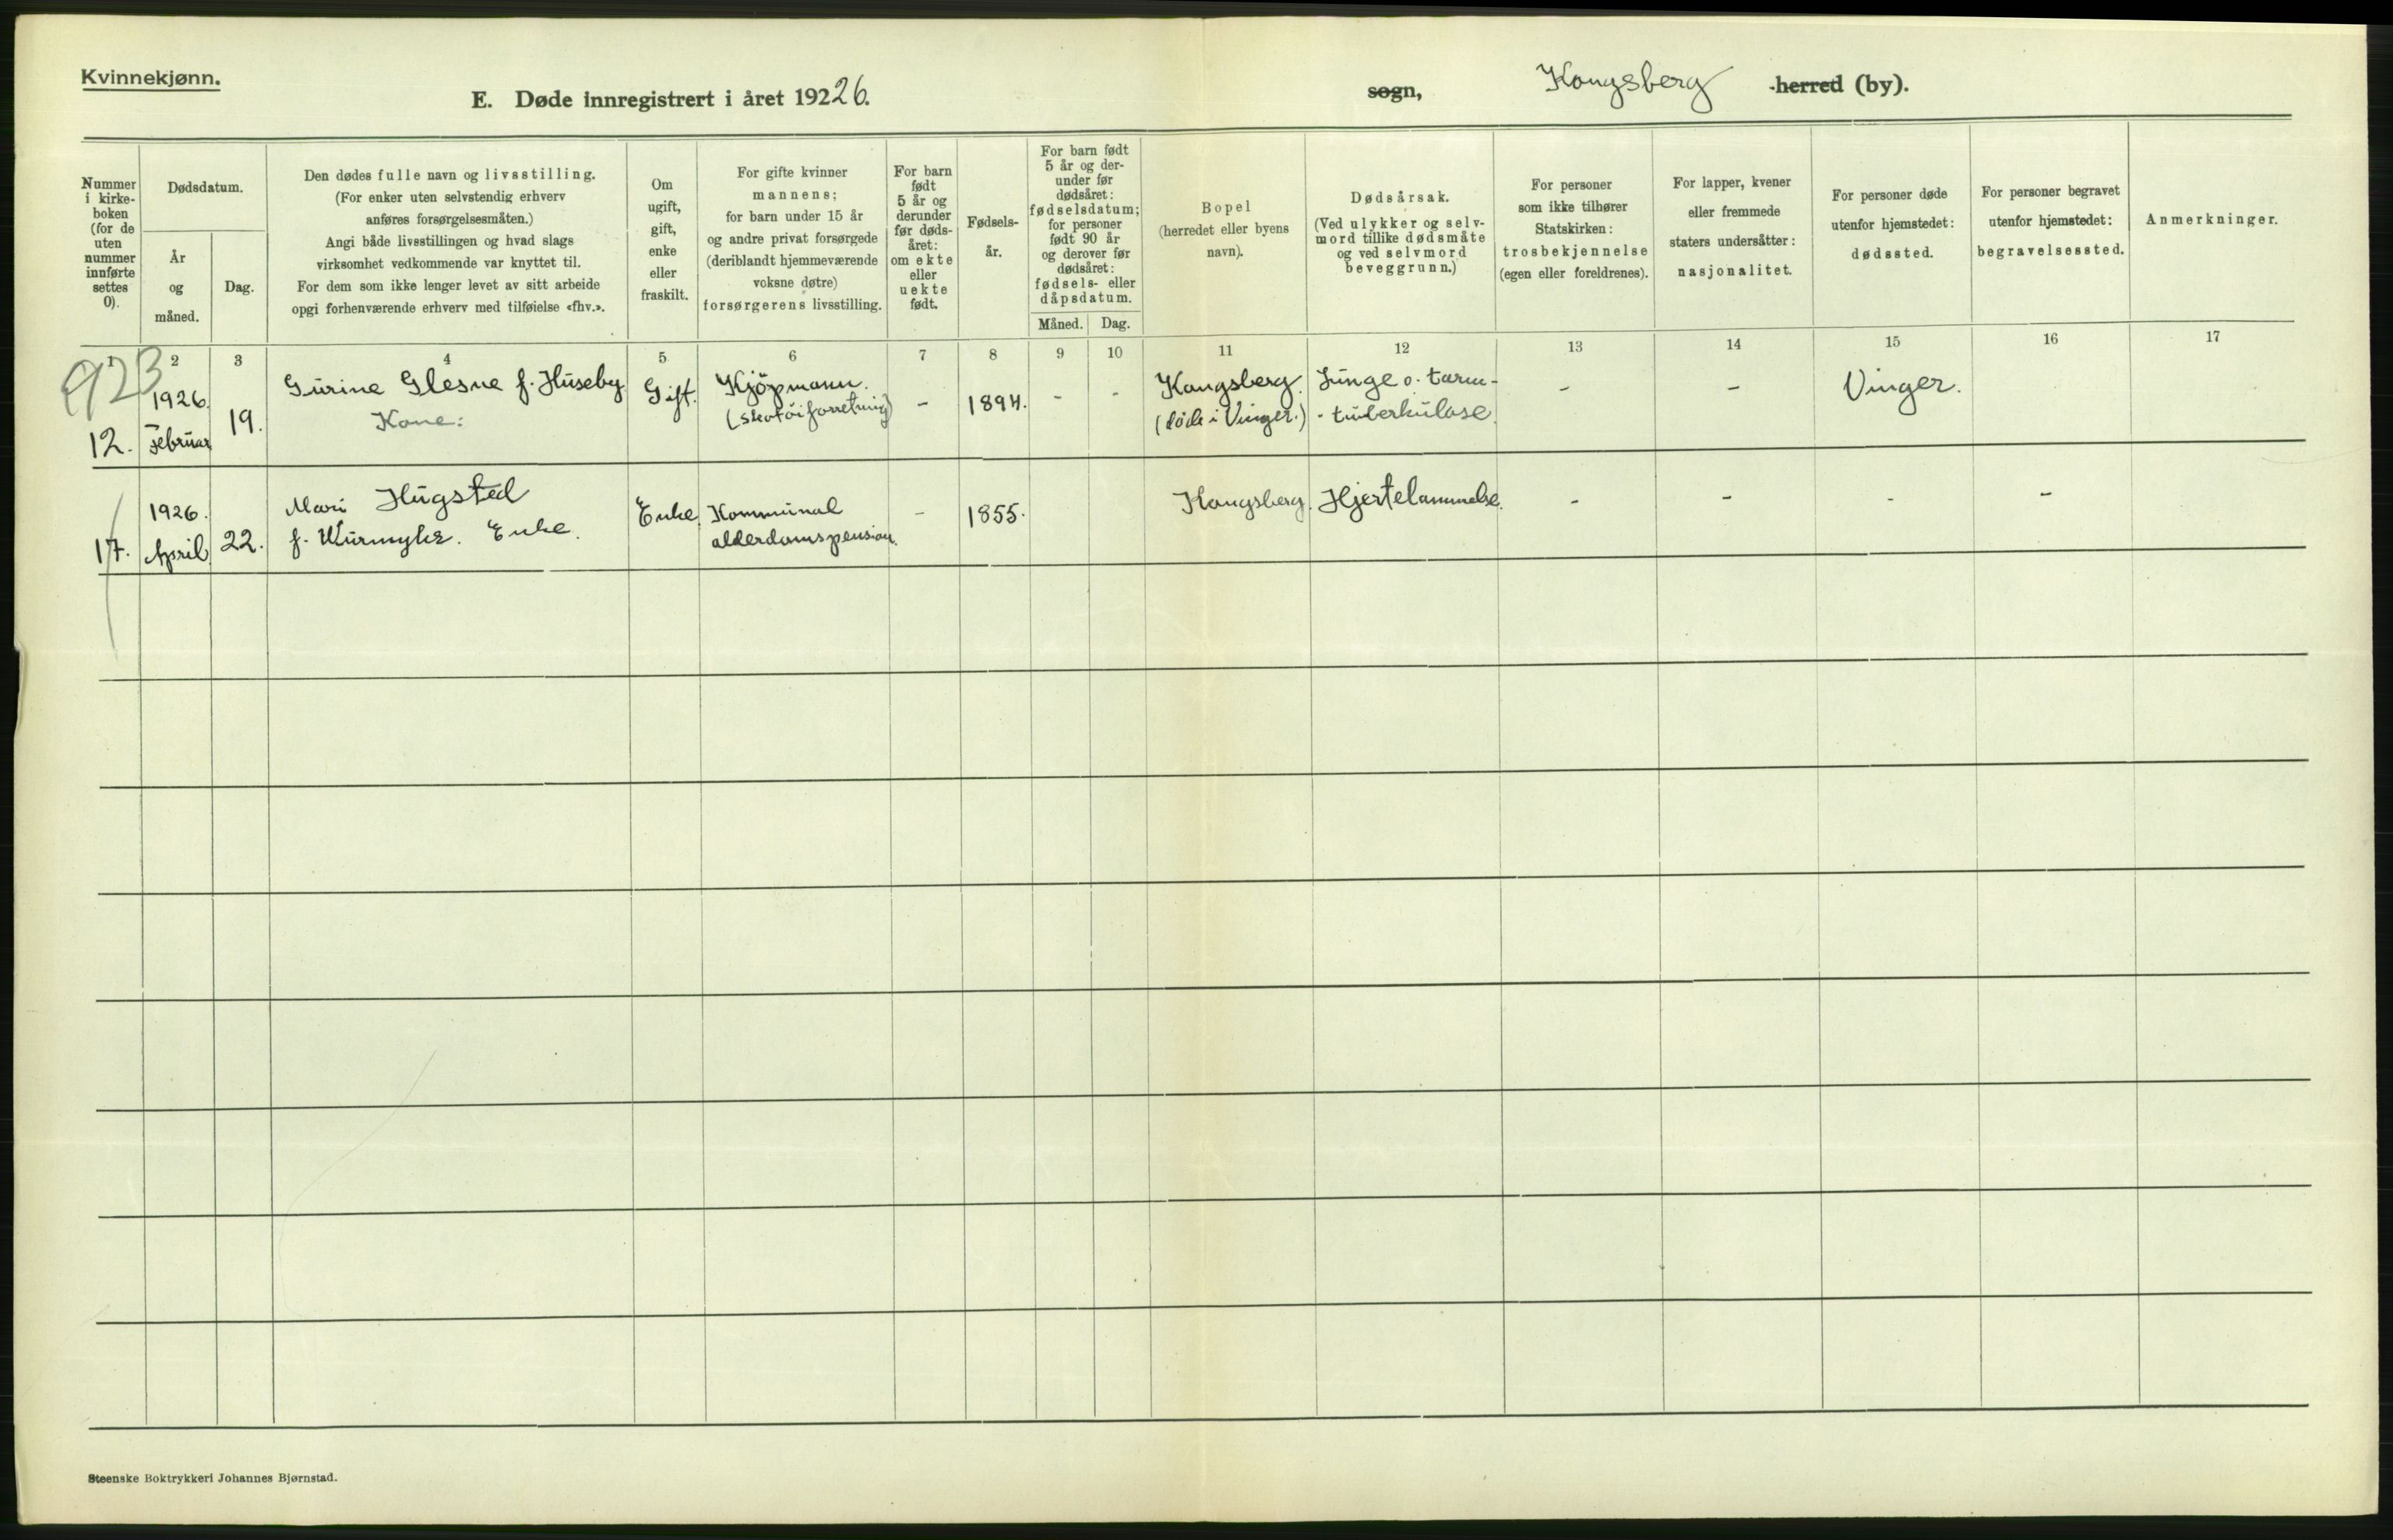 Kvinnekjønn.
E. Døde innregistrert i året 19226.
sogn,
Kongsberg
-herred (by).
Nummer
i kirke-
boken
(for de
uten
nummer
innførte
settes
0).
Dødsdatum.
År
og
måned.
Dag.
Den dødes fulle navn og livsstilling.
(For enker uten selvstendig erhverv
anføres forsørgelsesmåten.)
Angi både livsstillingen og hvad slags
virksomhet vedkommende var knyttet til.
For dem som ikke lenger levet av sitt arbeide
opgi forhenværende erhverv med tilføielse «fhv.».
Om
ugift,
gift,
enke
eller
fraskilt.
For gifte kvinner
mannens;
for barn under 15 år
og andre privat forsørgede
(deriblandt hjemmeværende
voksne døtre)
forsørgerens livsstilling.
For barn
født
5 år og
derunder
før døds-
året:
om ekte
eller
uekte
født.
Fødsels-
år.
For barn født
5 år og der-
under før
dødsåret:
fødselsdatum;
for personer
født 90 år
og derover før
dødsåret:
fødsels- eller
dåpsdatum.
Måned.
Dag.
Bopel
(herredet eller byens
navn).
Dødsårsak.
(Ved ulykker og selv-
mord tillike dødsmåte
og ved selvmord
beveggrunn.)
For personer
som ikke tilhører
Statskirken:
trosbekjennelse
(egen eller foreldrenes).
For lapper, kvener
eller fremmede
staters undersåtter:
nasjonalitet.
For personer døde
utenfor hjemstedet:
dødssted.
For personer begravet
utenfor hjemstedet:
begravelsessted.
Anmerkninger.
1 2 3 4 5 6 7 8 9 10 11 12 13 14 15 16 17
923
12.
1926.
Februar
19.
Gurine Glesne f. Huseby
Kone:
Gift.
Kjöpmann.
(skotöiforretning)
-
1894.
-
-
Kongsberg.
(döde i Vinger.)
Lunge o. tarm-
- tuberkulose.
-
-
Vinger.
17.
1926.
April
22.
Mari Hugsted
f. Wurmyhr. Enke.
Enke.
Kommunal
alderdomspension.
-
1855.
Kongsberg.
Hjertelammelse.
-
-
-
-
Steenske Boktrykkeri Johannes Bjørnstad.